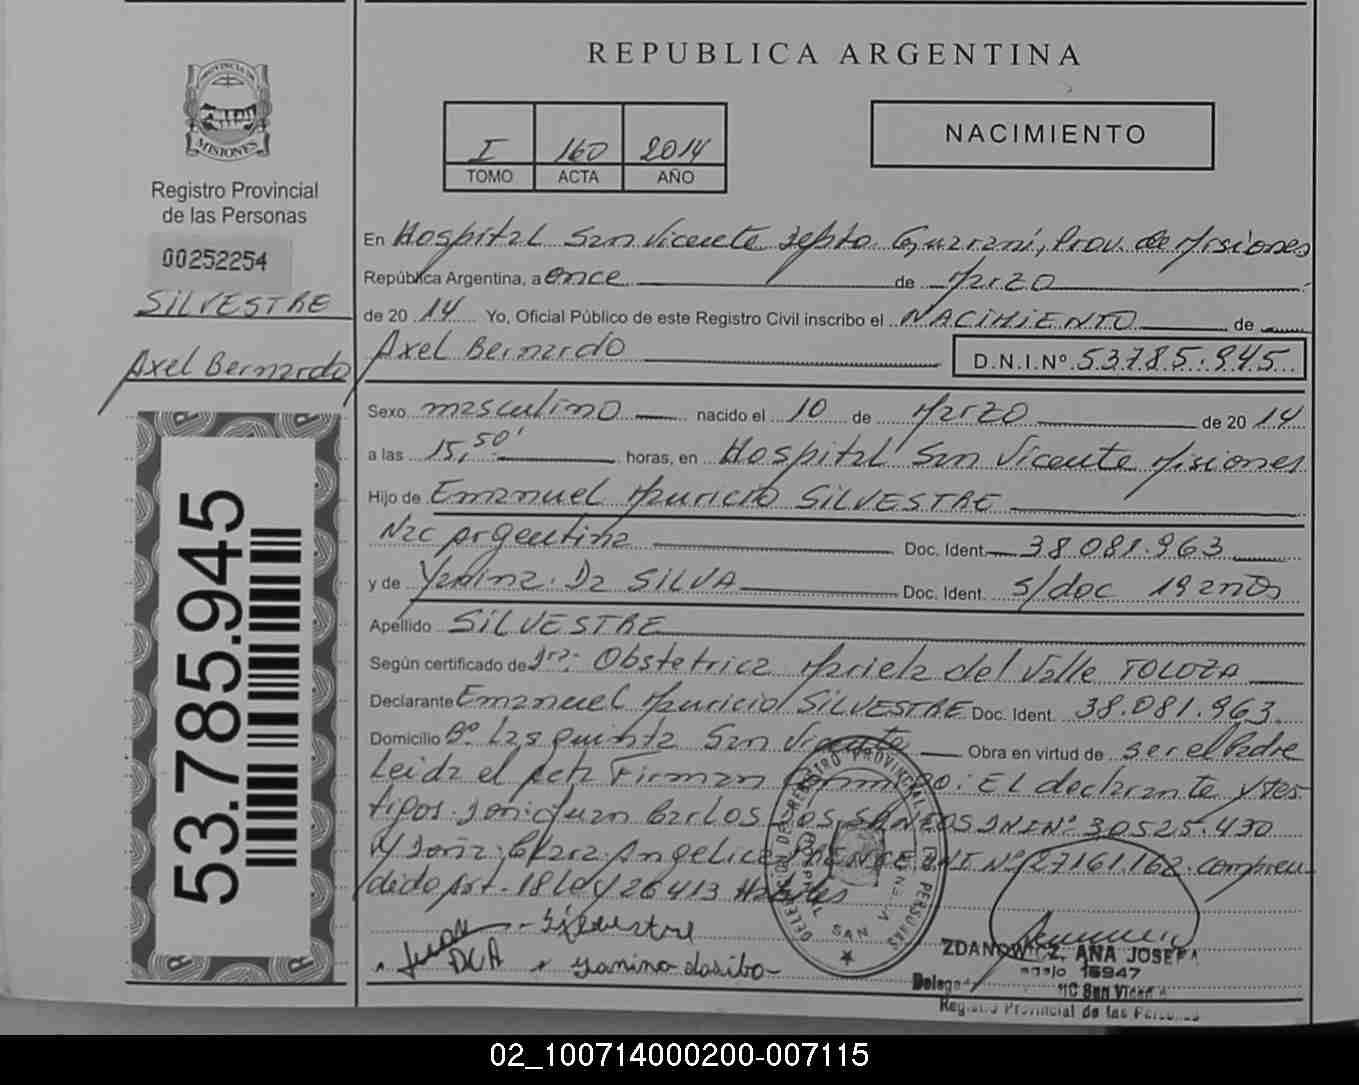 REPUBLICA ARGENTINA
PROVINCIA DE
MISIONES
Registro Provincial
de las Personas
00252254
SILVESTRE
Axel Bernardo
53.785.945
I 160 2014
TOMO ACTA AÑO
NACIMIENTO
En Hospital San Vicente Depto Guaraní, Prov. de Misiones
República Argentina, a once de Marzo
de 20 14 Yo, Oficial Público de este Registro Civil inscribo el NACIMIENTO de
Axel Bernardo D.N.I.Nº 53.785.945
Sexo masculino nacido el 10 de Marzo de 20 14
a las 15,50' horas, en Hospital San Vicente Misiones
Hijo de Emanuel Mauricio SILVESTRE
Nac argentina Doc. Ident. 38.081.963
y de Yanina Da SILVA Doc. Ident. s/doc 19 años
Apellido SILVESTRE
Según certificado de Dra. Obstetrica Mariela del Valle TOLOZA
Declarante Emanuel Mauricio SILVESTRE Doc. Ident. 38.081.963
Domicilio Bº Las quinta San Vicente Obra en virtud de ser el Padre
Leida el Acta Firman conmigo: El declarante y tes
tigos Don Juan Carlos Dos SANTOS DNI Nº 30525.430
y Doña Clara Angelica DNI Nº 27161.162 compren
dido Art. 18 Ley 26413 Habiles
DELEGACION DEL REGISTRO PROVINCIAL DE LAS PERSONAS
HOSPITAL SAN VICENTE
Juan Silvestre
DCA Yanina dasilva
ZDANOWICZ, ANA JOSEFA
Legajo 16947
Delegada RC San Vicente
Registro Provincial de las Personas
02_100714000200-007115